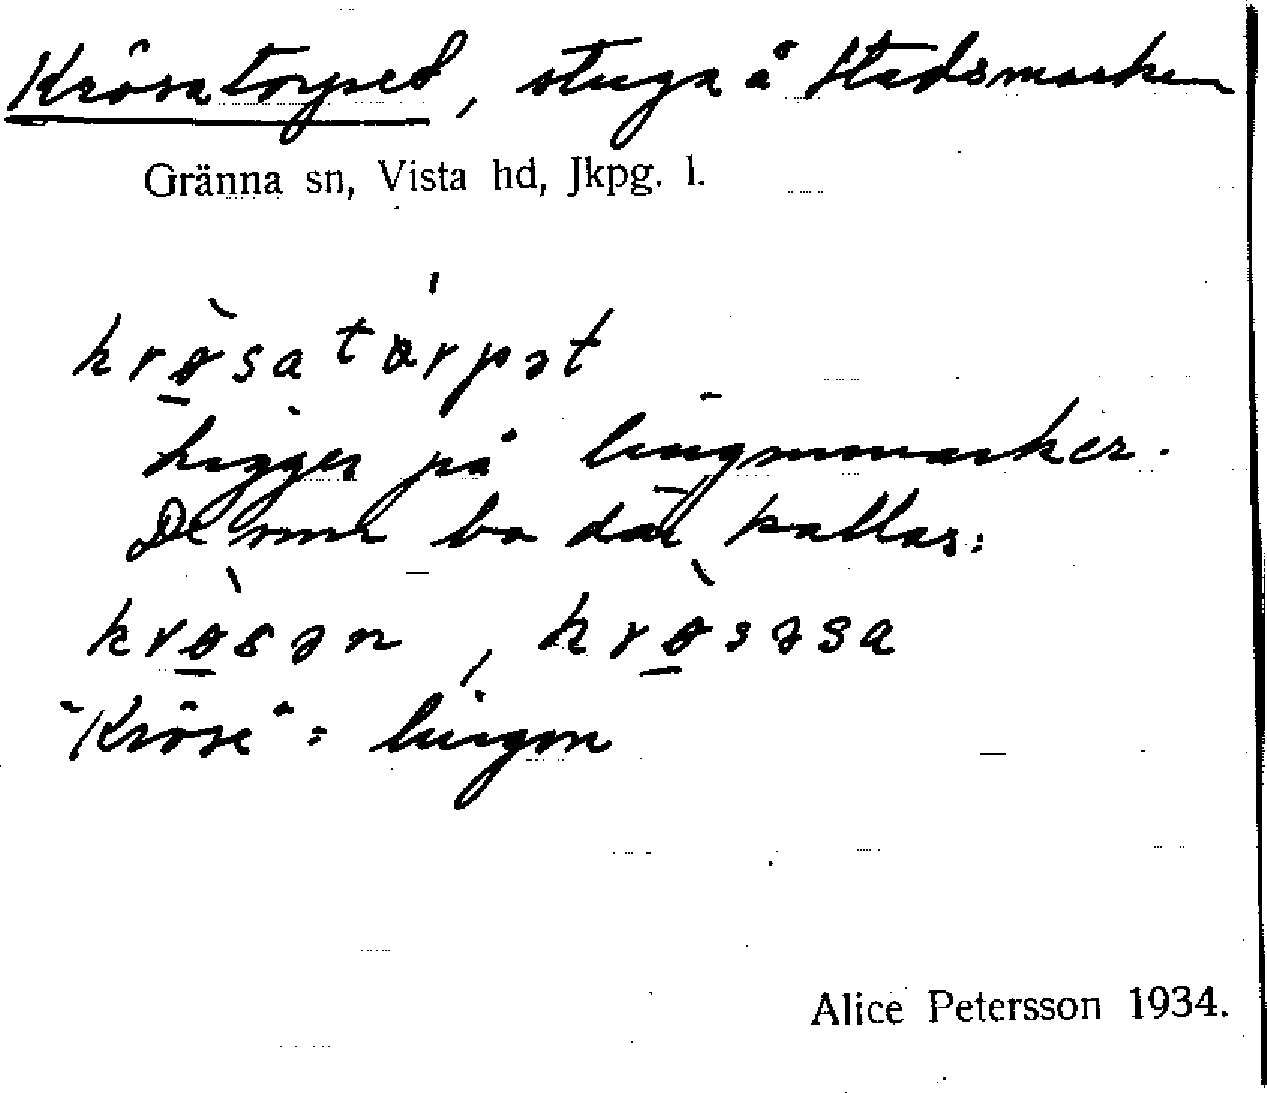 Krösatorpet, stuga å Stadsmarken
Gränna sn, Vista hd, Jkpg. l.
krø̱̀satårpət
Ligger på lingonmarker.
De som bo där kallas:
krø̱̀sən, krø̱̀səsa
"Kröse" = lingon
Alice Petersson 1934.